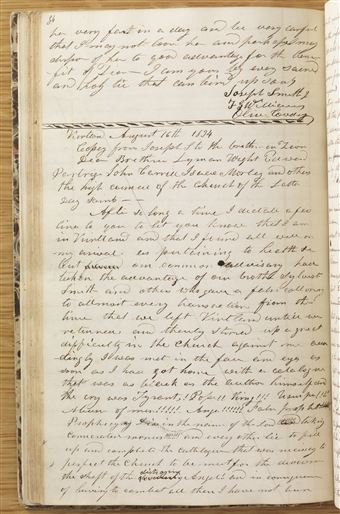 84
her very fast in a day and be very careful
that I may not loose her and perhaps may
dispose of her to good advantage for the bene-
fit of Zion — I am yours by every sacred
and holy tie that can bind us up so as
Joseph Smith Jr
F. G. Williams
Oliver Cowdery
Kirtland August 16th 1834
Copy from Joseph S to the brethren in Zion
Dear Brethren Lyman Wight Edward
Partridge John Carrill Isaac Morley and others
the high council of the Church of the Latter
Day Saints —
After so long a time I dictate a few
lines to you to let you know that I am
in Kirtland and that I found all well on
my arival as pertaining to health &c
but our common adversary had
taken the advantage of our brother Sylvester
Smith and others who gave a false colouring
to allmost every transaction from the
time that we left Kirtland untill we
returned and thereby stirred up a great
difficulty in the Church against me accor-
dingly I was met in the face and eyes as
soon as I had got home with a catalogue
that was as black as the author himself and
the cry was Tyrant,! Pope!! King!!! Usurper!!!!
Abuser of men!!!!! Ange!!!!!! False prophet
Prophecying in the name of the Lord taking
consecrated monies!!!!! and every other lie to fill
up and complete the catalogue that was necessary to
perfect the Church to be meet for the devourer
the shaft of the destroying Angel! and in consequence
of having to combat all these I have not been